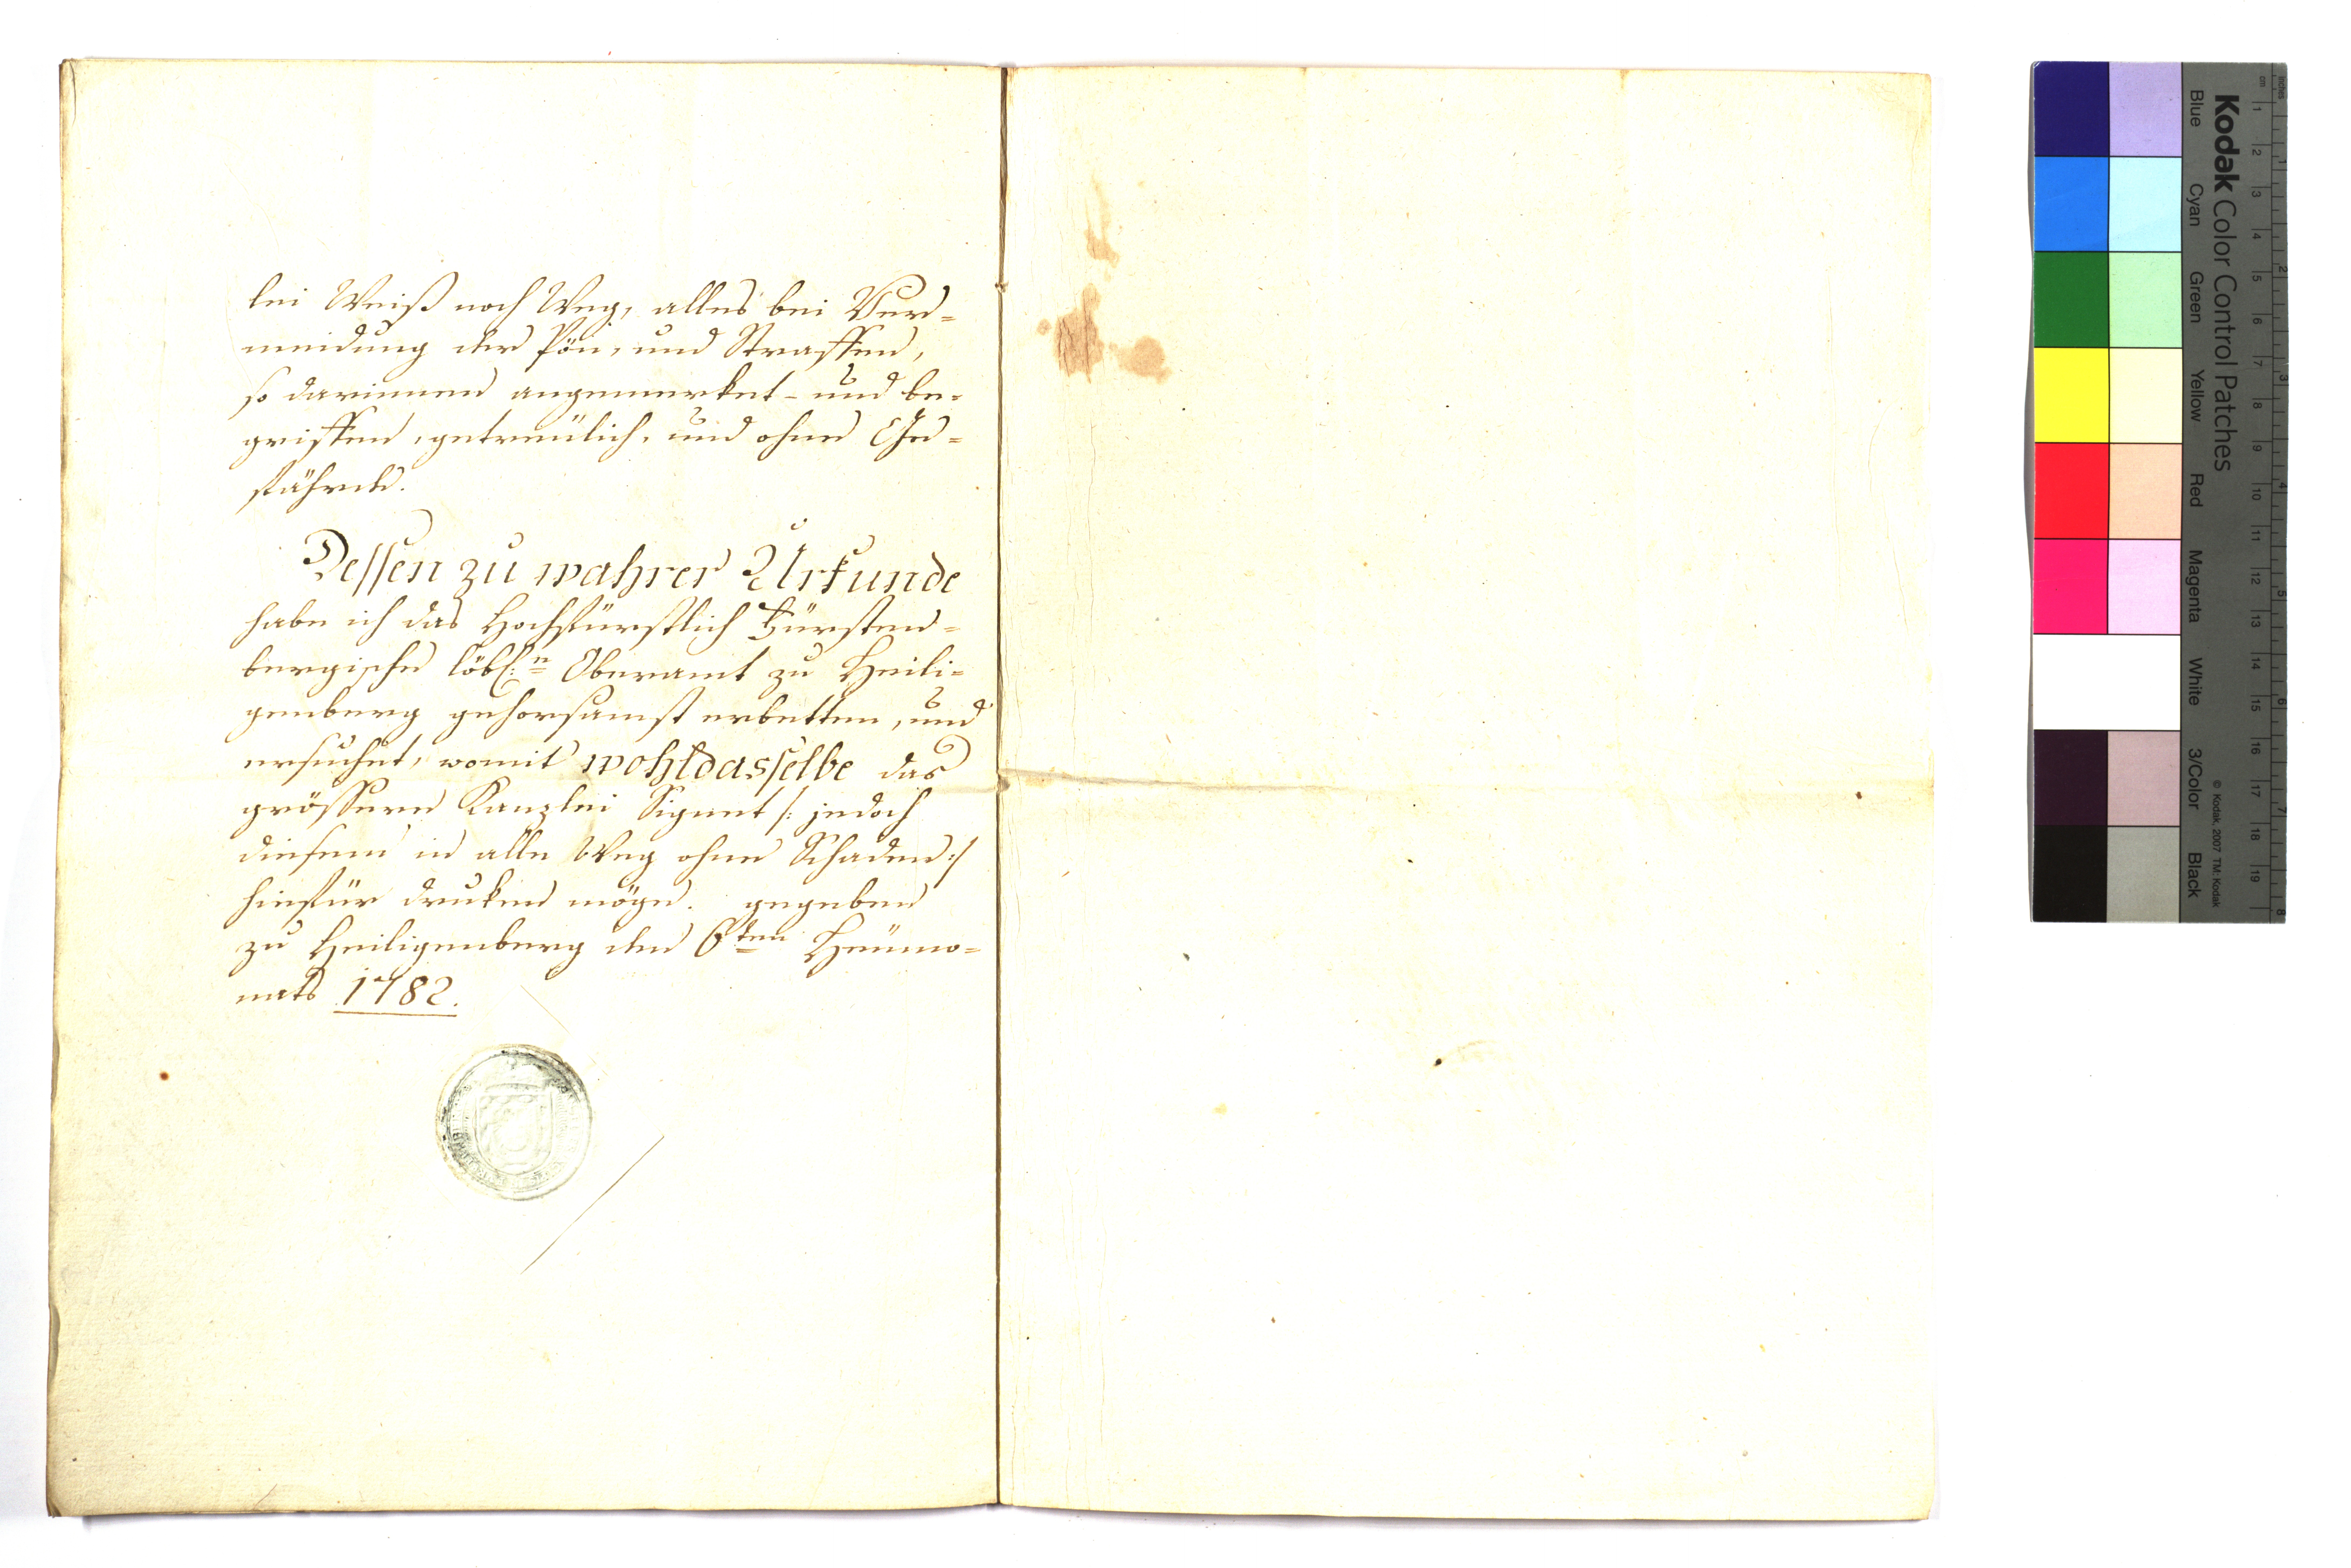 lei Weiß noch Weg, alles bei Ver=
meidung der Pön, und Straffen,
so darinnen angemerket- und be-
griffen, getreülich, und ohne Ge=
fährde.
Dessen zu wahrer Urkunde
habe ich das Hochfürstlich Fürsten=
bergische löbl:n Oberamt zu Heili=
genberg gehorsamst erbetten, und
ersuchet, womit wohldasselbe das
grössere Kanzlei Signet /: jedoch
diesem in alle Weg ohne Schaden :/
hiefür druken möge. gegeben
zu Heiligenberg den 6ten Heümo=
nats 1782.
Kodak Color Control Patches
Blue Cyan Green Yellow Red Magenta White 3/Color Black
© Kodak, 2007 TM: Kodak
inches
cm
1 2 3 4 5 6 7 8 9 10 11 12 13 14 15 16 17 18 19
1 2 3 4 5 6 7 8